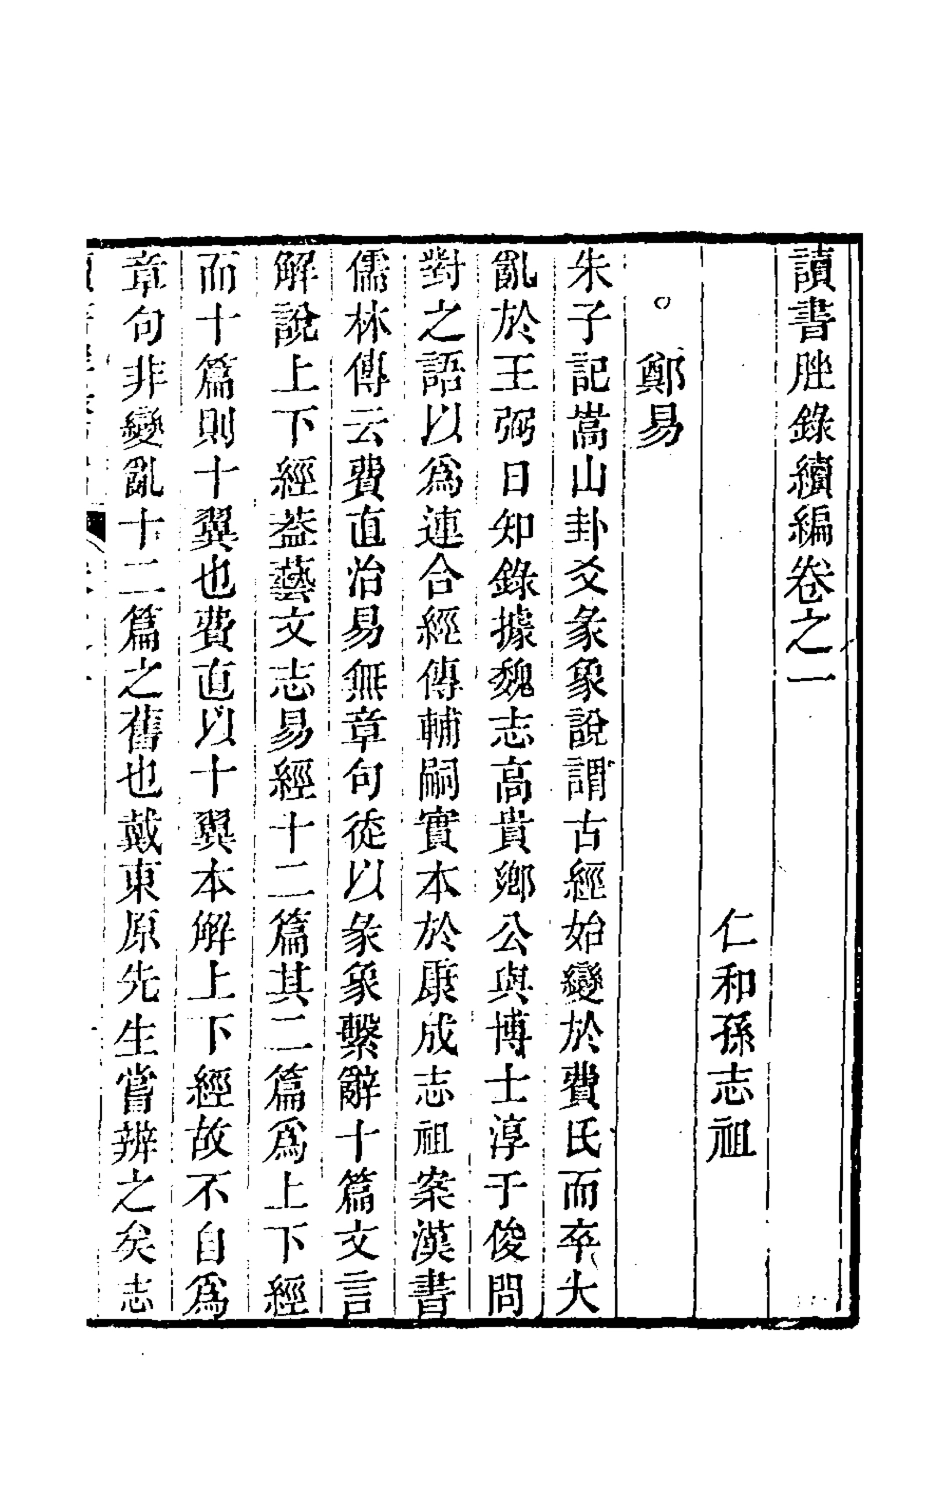 讀書脞錄續編卷之一
仁和孫志祖
。鄭易
朱子記嵩山卦爻彖象說謂古經始變於費氏而卒大
亂於王弼日知錄據魏志高貴鄉公與博士淳于俊問
對之語以爲連合經傳輔嗣實本於康成志祖案漢書
儒林傳云費直治易無章句徒以彖象繫辭十篇文言
解說上下經葢藝文志易經十二篇其二篇爲上下經
而十篇則十翼也費直以十翼本解上下經故不自爲
章句非變亂十二篇之舊也戴東原先生嘗辨之矣志